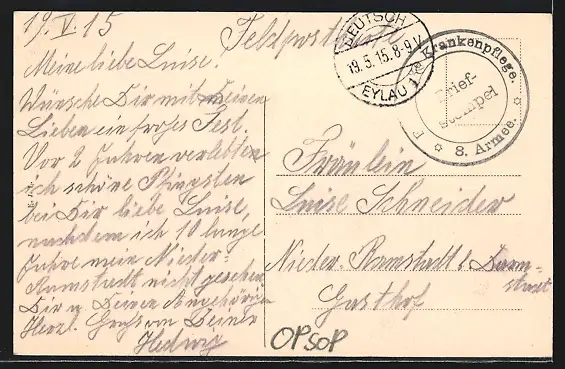 19.V.15
Feldpostkarte
Meine liebe Luise!
Wünsche Dir mit Deinen
Lieben ein frohes Fest.
Vor 2 Jahren verlebten
ich schöne Pfingsten
bei Dir liebe Luise,
nachdem ich 10 lange
Jahre mein Nieder-
Ramstadt nicht gesehen.
Dir u. Deinen Angehörigen
Herzl. Gruss von Deiner
Hedwig
DEUTSCH
19.5.15.8-9V.
EYLAU 1
Krankenpflege.
Brief-
stempel
8. Armee.
Fräulein
Luise Schneider
Nieder-Ramstadt b. Darm-
stadt
Gasthof
OPSOP